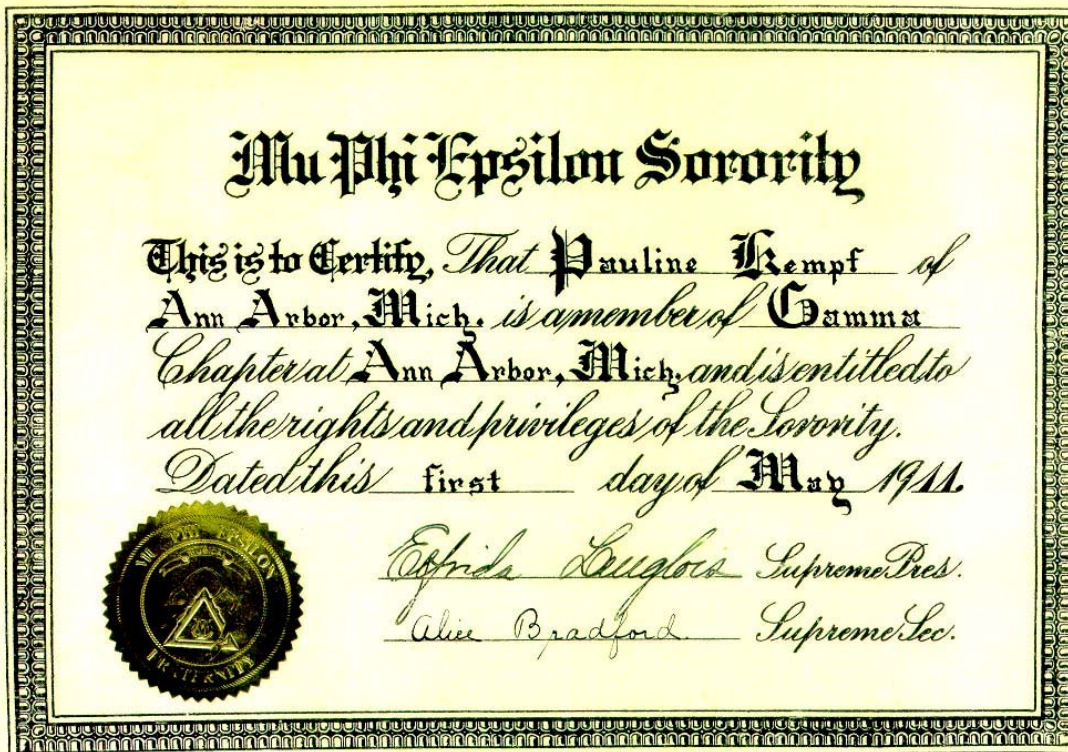 Mu Phi Epsilon Sorority
This is to Certify, That Pauline Kempf of
Ann Arbor, Mich. is a member of Gamma
Chapter at Ann Arbor, Mich. and is entitled to
all the rights and privileges of the Sorority.
Dated this first day of May 1911.
Langlois Supreme Pres.
Alice Bradford. Supreme Sec.
MU PHI EPSILON
FRATERNITY